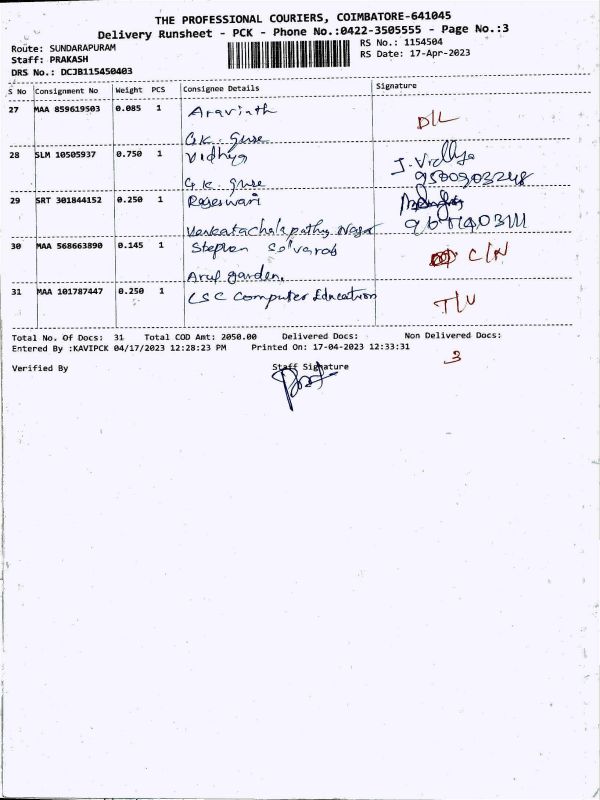 THE PROFESSIONAL COURIERS, COIMBATORE-641045
Delivery Runsheet - PCK - Phone No.:0422-3505555 - Page No.:3
Route: SUNDARAPURAM
RS No.: 1154504
Staff: PRAKASH
RS Date: 17-Apr-2023
DRS No.: DCJB115450403
S No Consignment No Weight PCS Consignee Details Signature
27 MAA 859619503 0.085 1 Aravinth
D/L
G.K.
28 SLM 10505937 0.750 1 Vidhya
J. Vidhya
G.K.
9500903248
29 SRT 301844152 0.250 1 Rajeswari
Venkatachalapathy Nagar
30 MAA 568663890 0.145 1 Stephen Selvaraj
C/N
Arul garden.
31 MAA 101787447 0.250 1 CSC Computer Education
T/U
Total No. Of Docs: 31 Total COD Amt: 2050.00 Delivered Docs: Non Delivered Docs:
Entered By :KAVIPCK 04/17/2023 12:28:23 PM Printed On: 17-04-2023 12:33:31
3
Verified By Staff Signature